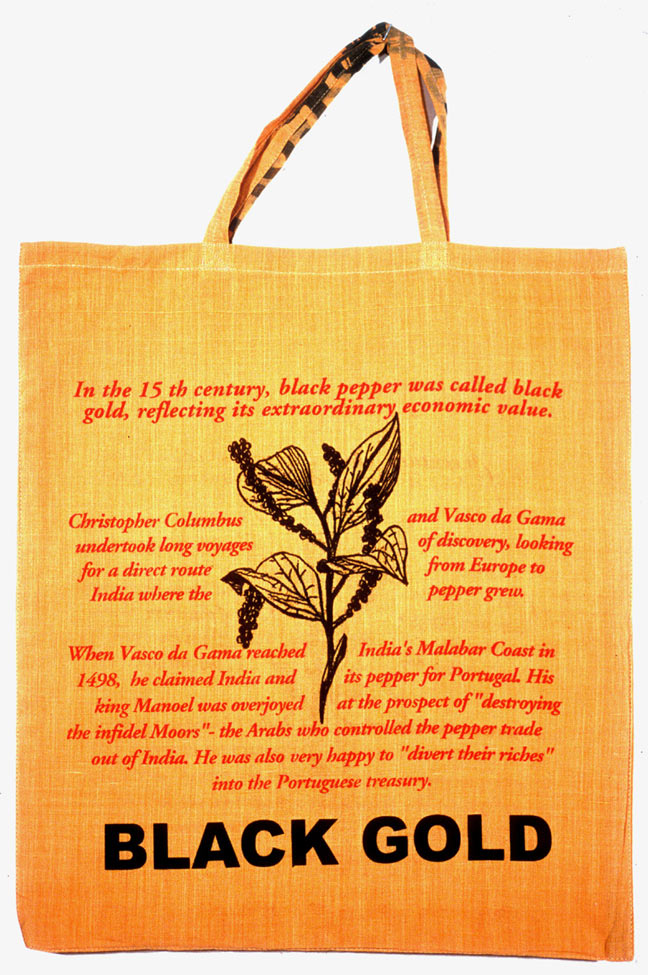 In the 15 th century, black pepper was called black
gold, reflecting its extraordinary economic value.
Christopher Columbus and Vasco da Gama
undertook long voyages of discovery, looking
for a direct route from Europe to
India where the pepper grew.
When Vasco da Gama reached India's Malabar Coast in
1498, he claimed India and its pepper for Portugal. His
king Manoel was overjoyed at the prospect of "destroying
the infidel Moors"- the Arabs who controlled the pepper trade
out of India. He was also very happy to "divert their riches"
into the Portuguese treasury.
BLACK GOLD